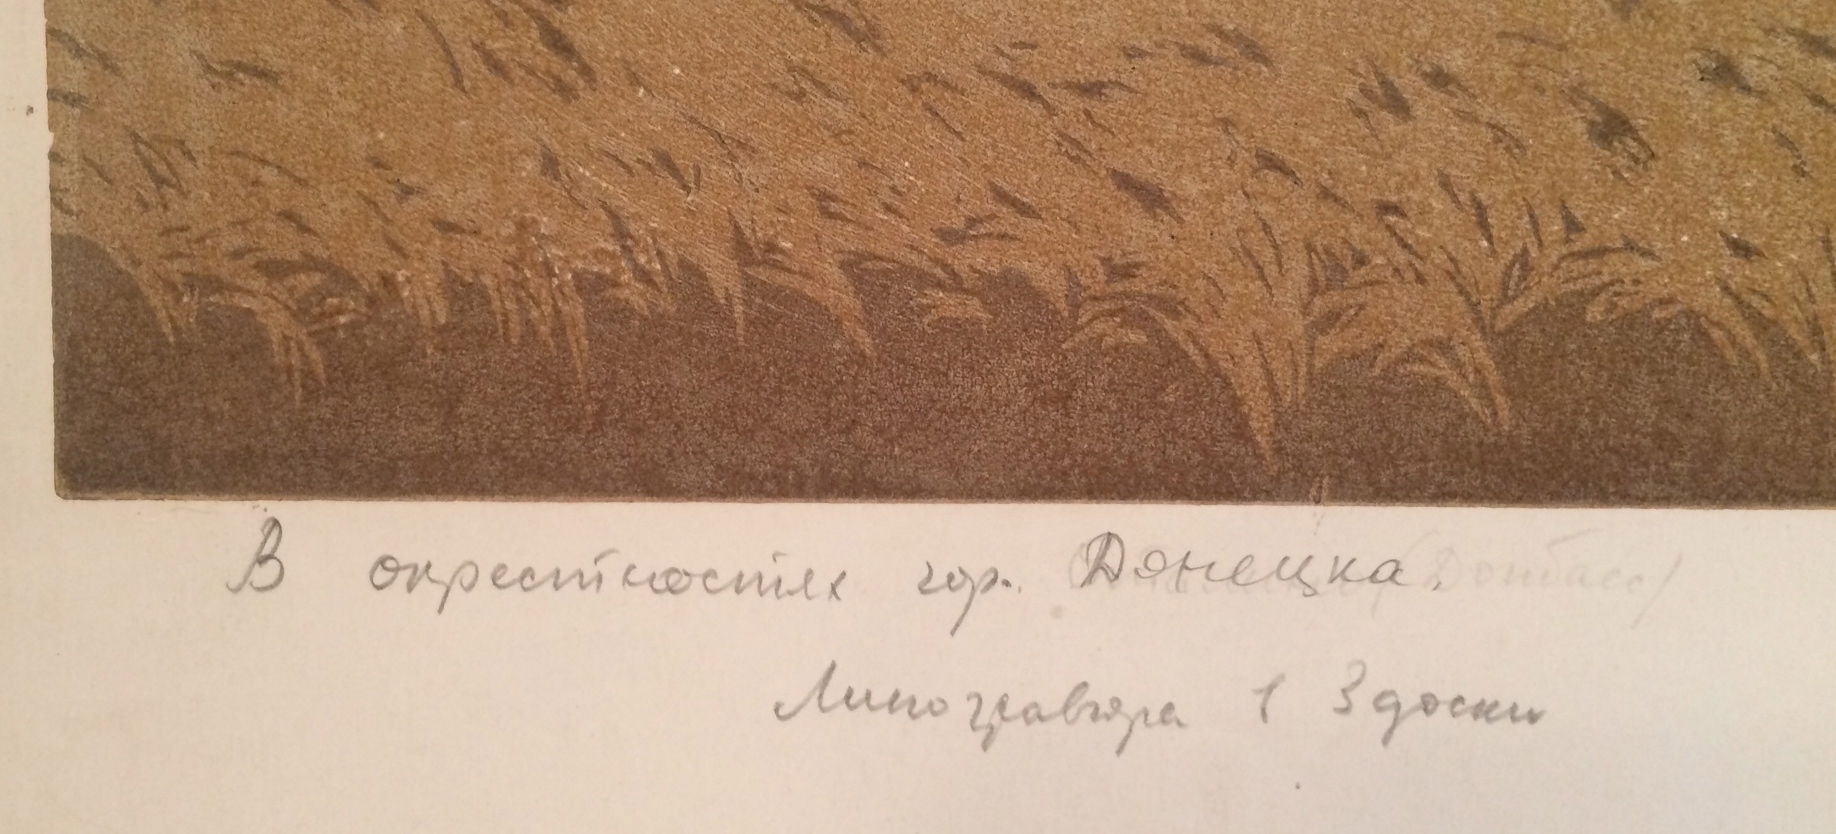 В окрестностях гор. Донецка. (Донбасс)
Линогравюра 3 доски